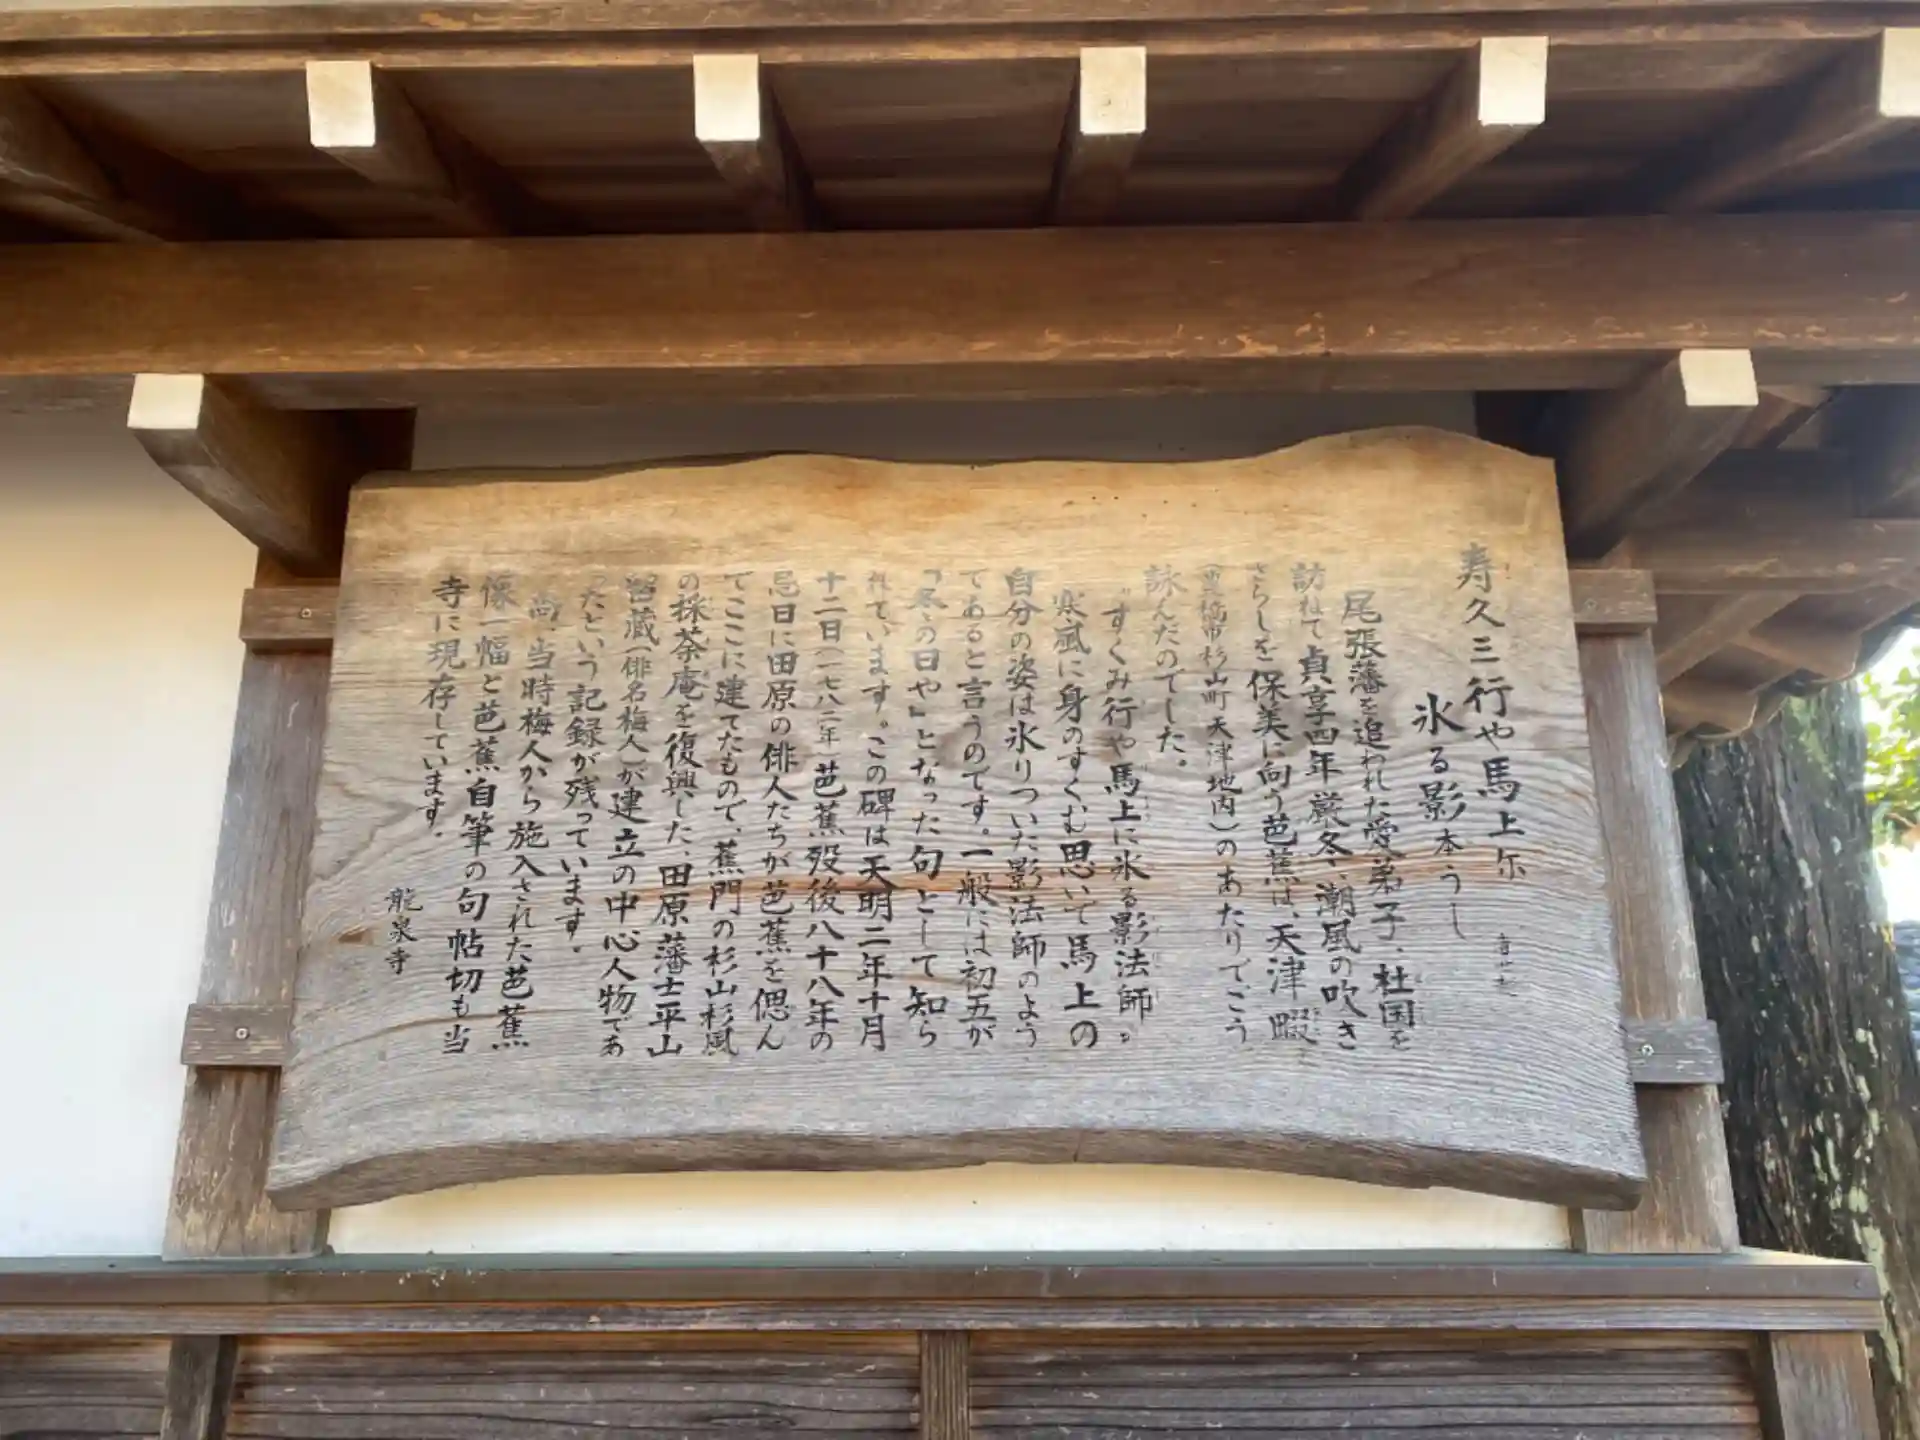 寿久三行や馬上尓
氷る影本うし
尾張藩を追われた愛弟子、杜国を
訪ねて貞享四年厳冬、潮風の吹き
さらしを保美に向う芭蕉は、天津畷
(豊橋市杉山町天津地内)のあたりでこう
詠んだのでした。
“すくみ行や馬上に氷る影法師”
寒風に身のすくむ思いで馬上の
自分の姿は氷りついた影法師のよう
であると言うのです。一般には初五が
「冬の日や」となった句として知ら
れています。この碑は天明二年十月
十二日(一七八二年)芭蕉歿後八十八年の
忌日に田原の俳人たちが芭蕉を偲ん
でここに建てたもので、蕉門の杉山杉風
の採荼庵を復興した、田原藩士平山
留蔵(俳名梅人)が建立の中心人物であ
ったという記録が残っています。
尚、当時梅人から施入された芭蕉
像一幅と芭蕉自筆の句帖切も当
寺に現存しています。
龍泉寺